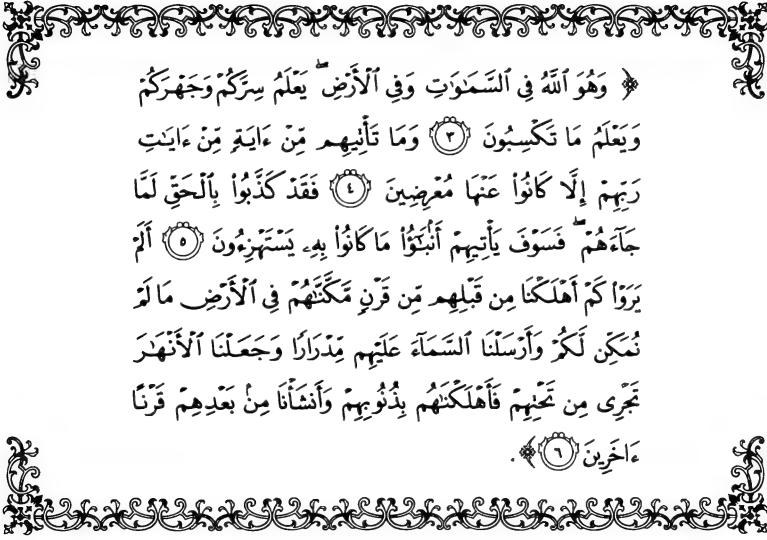 ﴿ وَهُوَ ٱللَّهُ فِي ٱلسَّمَٰوَٰتِ وَفِي ٱلْأَرْضِ ۖ يَعْلَمُ سِرَّكُمْ وَجَهْرَكُمْ
وَيَعْلَمُ مَا تَكْسِبُونَ ٣ وَمَا تَأْتِيهِم مِّنْ ءَايَةٍ مِّنْ ءَايَٰتِ
رَبِّهِمْ إِلَّا كَانُوا۟ عَنْهَا مُعْرِضِينَ ٤ فَقَدْ كَذَّبُوا۟ بِٱلْحَقِّ لَمَّا
جَآءَهُمْ ۖ فَسَوْفَ يَأْتِيهِمْ أَنۢبَٰٓؤُا۟ مَا كَانُوا۟ بِهِۦ يَسْتَهْزِءُونَ ٥ أَلَمْ
يَرَوْا۟ كَمْ أَهْلَكْنَا مِن قَبْلِهِم مِّن قَرْنٍ مَّكَّنَّٰهُمْ فِي ٱلْأَرْضِ مَا لَمْ
نُمَكِّن لَّكُمْ وَأَرْسَلْنَا ٱلسَّمَآءَ عَلَيْهِم مِّدْرَارًا وَجَعَلْنَا ٱلْأَنْهَٰرَ
تَجْرِى مِن تَحْتِهِمْ فَأَهْلَكْنَٰهُم بِذُنُوبِهِمْ وَأَنشَأْنَا مِنۢ بَعْدِهِمْ قَرْنًا
ءَاخَرِينَ ٦ ﴾.